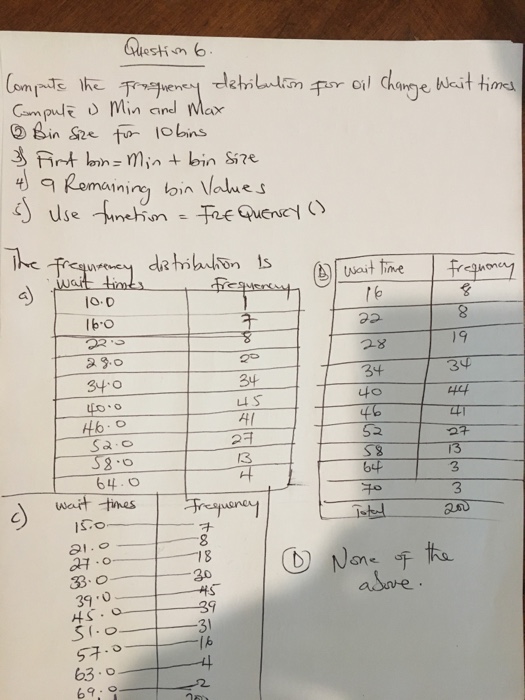 Question 6.
Compute the frequency distribution for oil change wait times
Compute 1) Min and Max
② Bin Size for 10 bins
3) First bin = Min + bin size
4) 9 Remaining bin Values
5) Use function = FREQUENCY ()
The frequency distribution is
a) wait times frequency
10.0 1
16.0 7
22.0 8
28.0 20
34.0 34
40.0 45
46.0 41
52.0 27
58.0 13
64.0 4
Ⓑ Wait Time Frequency
16 8
22 8
28 19
34 34
40 44
46 41
52 27
58 13
64 3
70 3
Total 200
c) wait times Frequency
15.0 7
21.0 8
27.0 18
33.0 30
39.0 45
45.0 39
51.0 31
57.0 16
63.0 4
69.0 2
Ⓓ None of the
above.